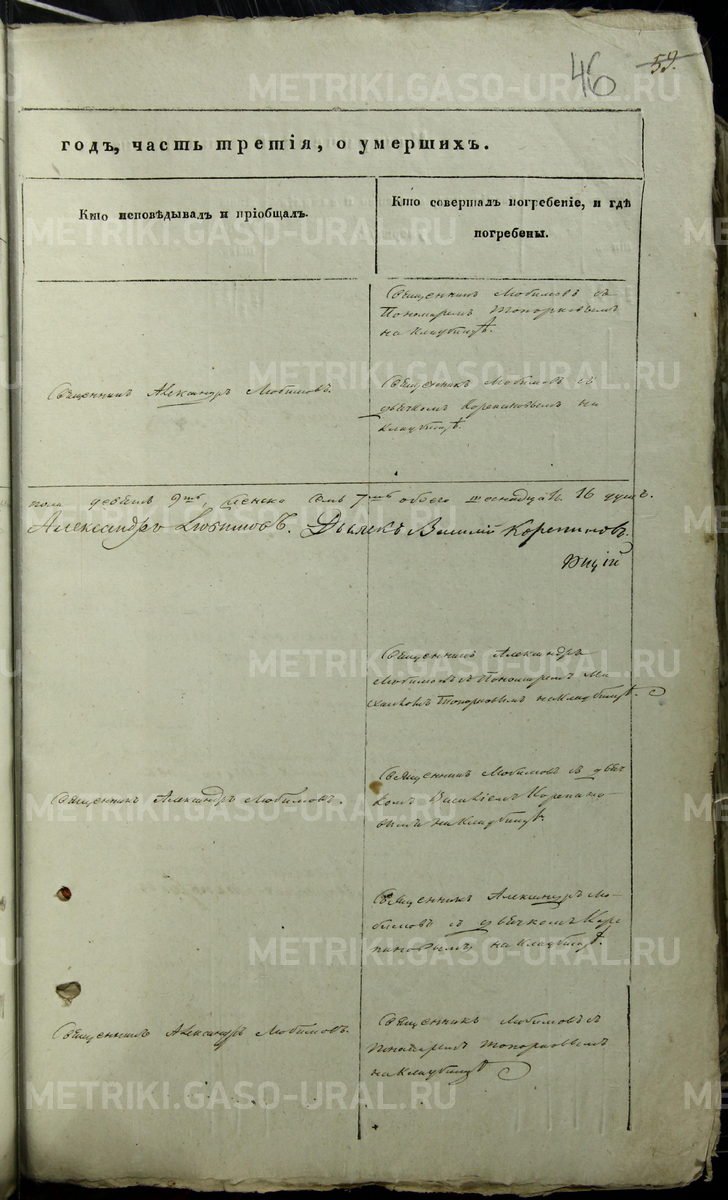 46 59.
годъ, часть третія, о умершихъ.
Кто исповѣдывалъ и пріобщалъ.
Кто совершалъ погребеніе, и гдѣ
погребены.
Священникъ Любимовъ съ
Пономаремъ Топорковымъ
на кладбищѣ.
Священникъ Александръ Любимовъ.
Священникъ Любимовъ съ
дьячкомъ Корепановымъ на
кладбищѣ.
пола девять 9ть, женска семь 7мь обоего шеснадцать 16 душъ.
Александръ Любимовъ. Дьячекъ Василій Корепановъ.
Священникъ Александръ
Любимовъ съ Пономаремъ
Топорковымъ на кладбищѣ.
Священникъ Александръ Любимовъ.
Священникъ Любимовъ съ дьяч-
комъ Василіемъ Корепано-
вымъ на кладбищѣ.
Священникъ Александръ Лю-
бимовъ съ дьячкомъ Коре-
пановымъ на кладбищѣ.
Священникъ Александръ Любимовъ.
Священникъ Любимовъ съ
Пономаремъ Топорковымъ
на кладбищѣ
METRIKI.GASO-URAL.RU